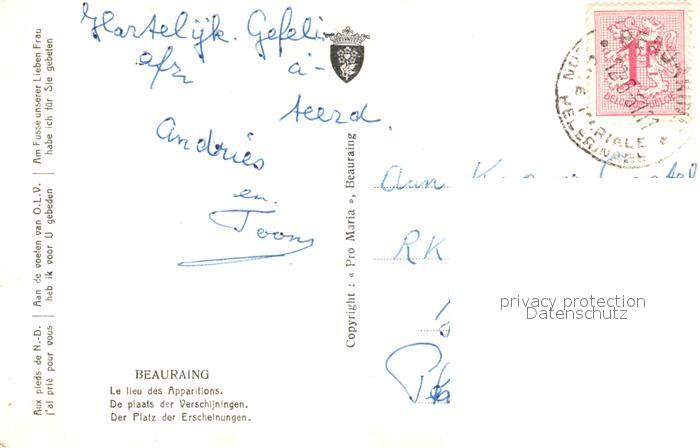 Hartelijk. Gefeli-
afz
ci-
teerd.
Andries
en
Toon
Aan
RK
Copyright : « Pro Maria », Beauraing
BEAURAING
Le lieu des Apparitions.
De plaats der Verschijningen.
Der Platz der Erscheinungen.
Aux pieds de N.-D.
j'ai prié pour vous
Aan de voeten van O.L.V.
heb ik voor U gebeden
Am Fusse unserer Lieben Frau
habe ich für Sie gebeten
1F
privacy protection
Datenschutz